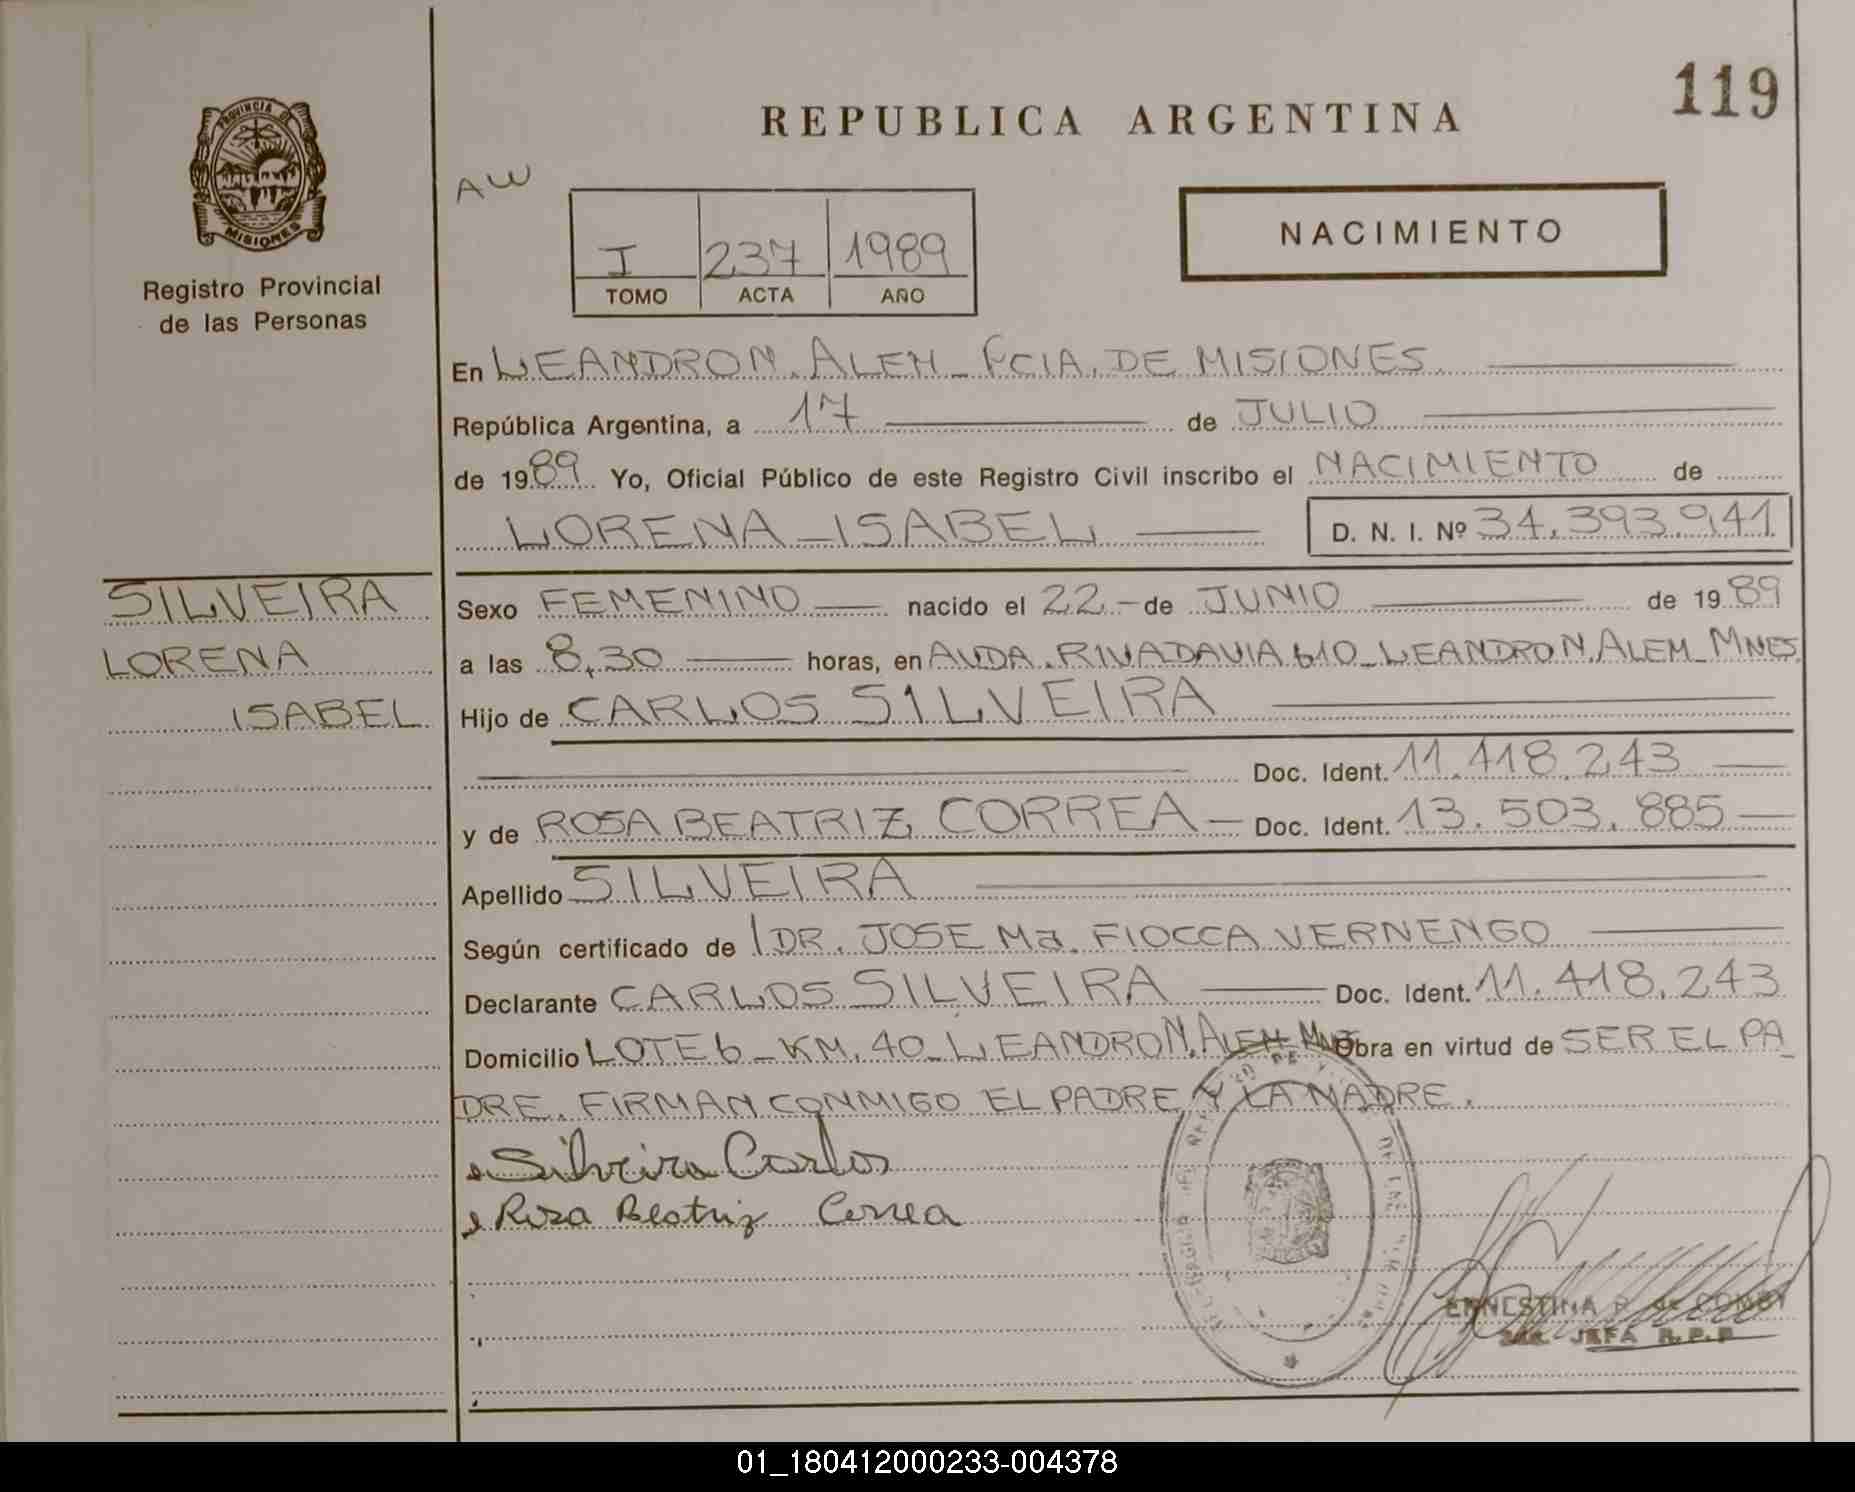 119
REPUBLICA ARGENTINA
PROVINCIA DE
MISIONES
Registro Provincial
de las Personas
AW
NACIMIENTO
I 237 1989
TOMO ACTA AÑO
En LEANDRO N. ALEM _ PCIA. DE MISIONES
República Argentina, a 17 de JULIO
de 1989 Yo, Oficial Público de este Registro Civil inscribo el NACIMIENTO de
LORENA _ ISABEL D. N. I. Nº 34.393.941
SILVEIRA
LORENA
ISABEL
Sexo FEMENINO nacido el 22 - de JUNIO de 1989
a las 8,30 horas, en AVDA. RIVADAVIA 610 _ LEANDRO N. ALEM _ MNES.
Hijo de CARLOS SILVEIRA
Doc. Ident. 11.418.243
y de ROSA BEATRIZ CORREA - Doc. Ident. 13.503.885
Apellido SILVEIRA
Según certificado de DR. JOSE Ma. FIOCCA VERNENGO
Declarante CARLOS SILVEIRA Doc. Ident. 11.418.243
Domicilio LOTE 6 _ KM. 40 _ LEANDRO N. ALEM MNES Obra en virtud de SER EL PA_
DRE. FIRMAN CONMIGO EL PADRE Y LA MADRE.
Silveira Carlos
Rosa Beatriz Correa
ERNESTINA R. de
JEFA R.P.P
01_180412000233-004378